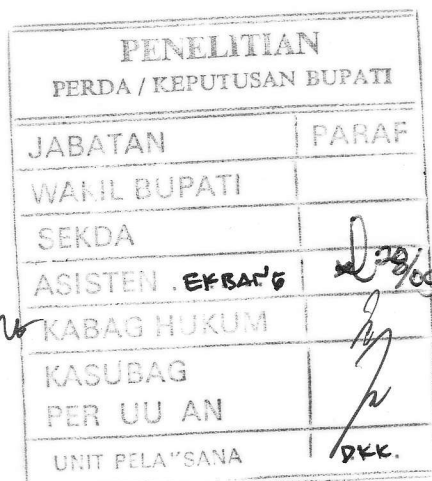 PENELITIAN
PERDA / KEPUTUSAN BUPATI
JABATAN PARAF
WAKIL BUPATI
SEKDA
ASISTEN . EKBANG
KABAG HUKUM
KASUBAG
PER UU AN
UNIT PELAKSANA DKK.